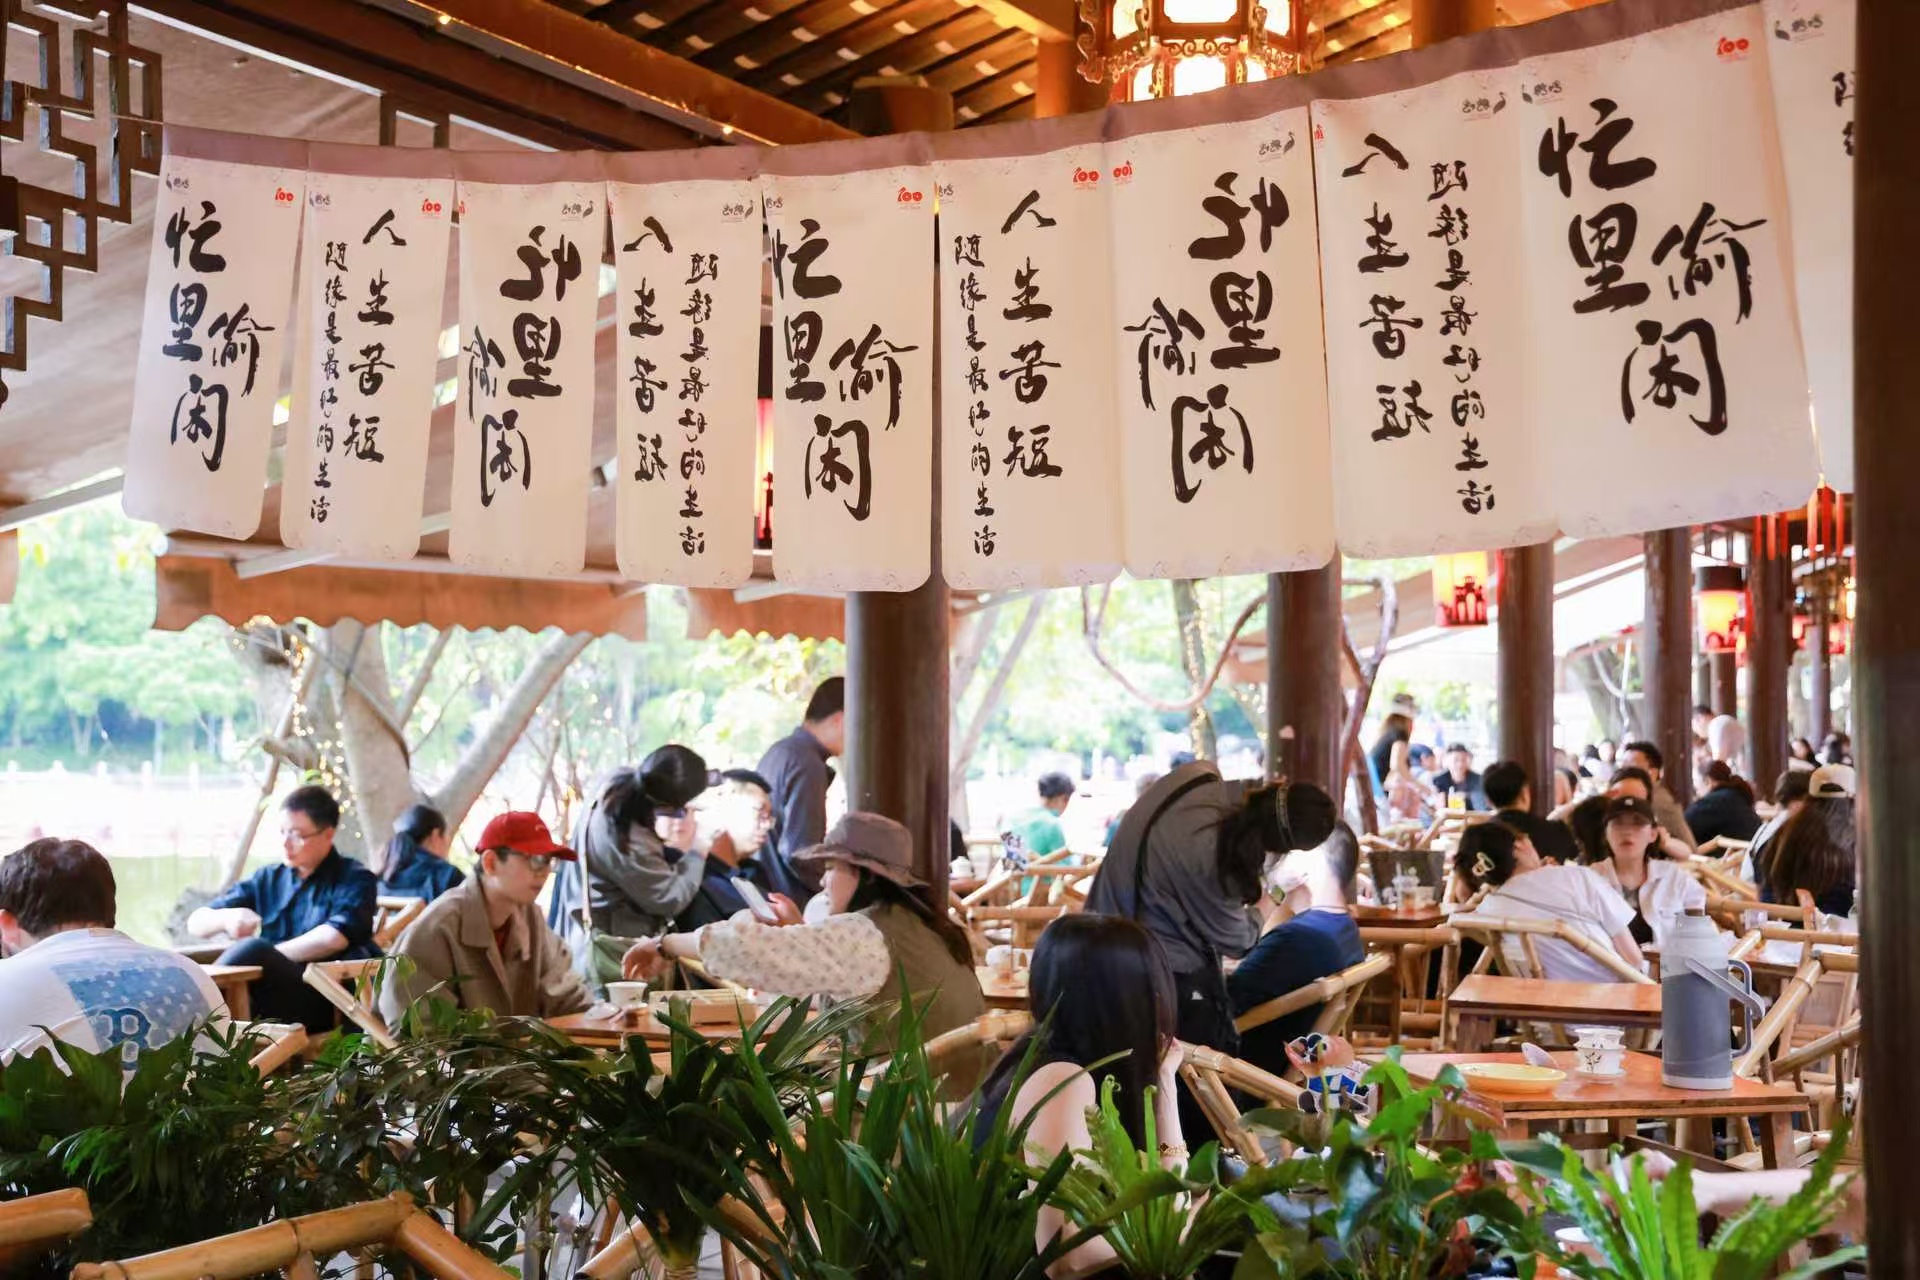 100
忙里偷闲
100
人生苦短
随缘是最好的生活
忙里偷闲
人生苦短
随缘是最好的生活
100
忙里偷闲
100
人生苦短
随缘是最好的生活
100
忙里偷闲
人生苦短
随缘是最好的生活
100
忙里偷闲
B